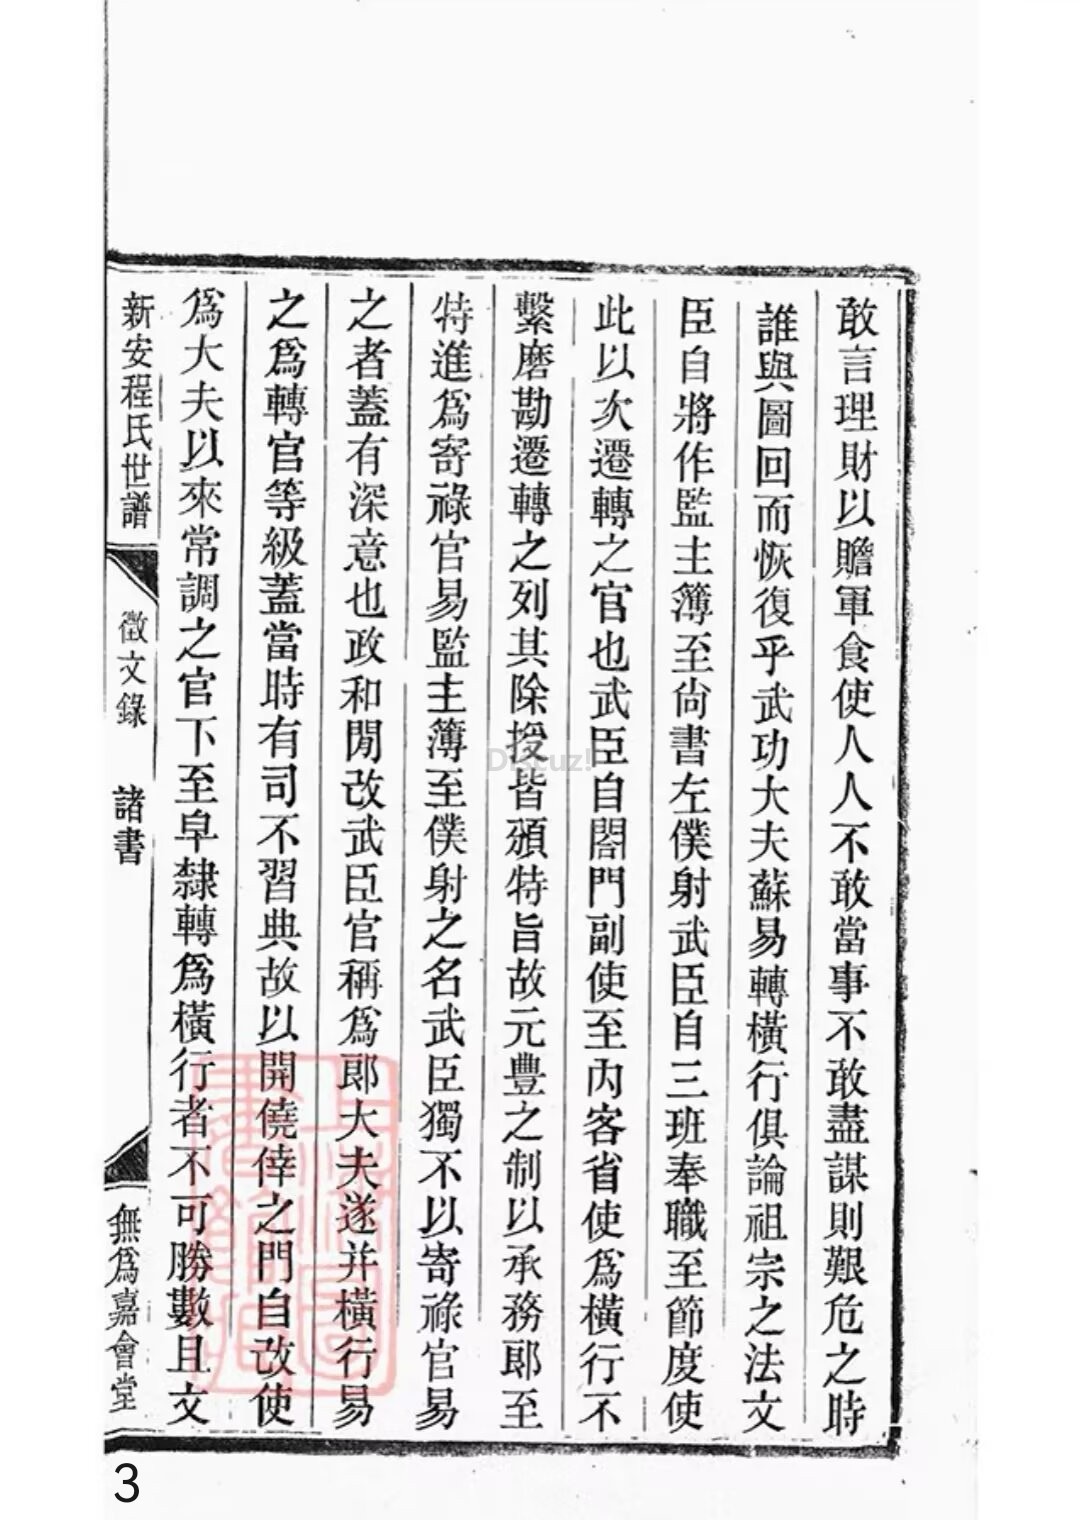 敢言理財以贍軍食使人人不敢當事不敢盡謀則艱危之時
誰與圖回而恢復乎武功大夫蘇易轉橫行俱論祖宗之法文
臣自將作監主簿至尙書左僕射武臣自三班奉職至節度使
此以次遷轉之官也武臣自閤門副使至內客省使爲橫行不
繫磨勘遷轉之列其除授皆頒特旨故元豐之制以承務郎至
特進爲寄祿官易監主簿至僕射之名武臣獨不以寄祿官易
之者蓋有深意也政和閒改武臣官稱爲郎大夫遂并橫行易
之爲轉官等級蓋當時有司不習典故以開僥倖之門自改使
爲大夫以來常調之官下至皁隸轉爲橫行者不可勝數且文
新安程氏世譜 徵文錄 諸書 無爲嘉會堂
Discuz!
3